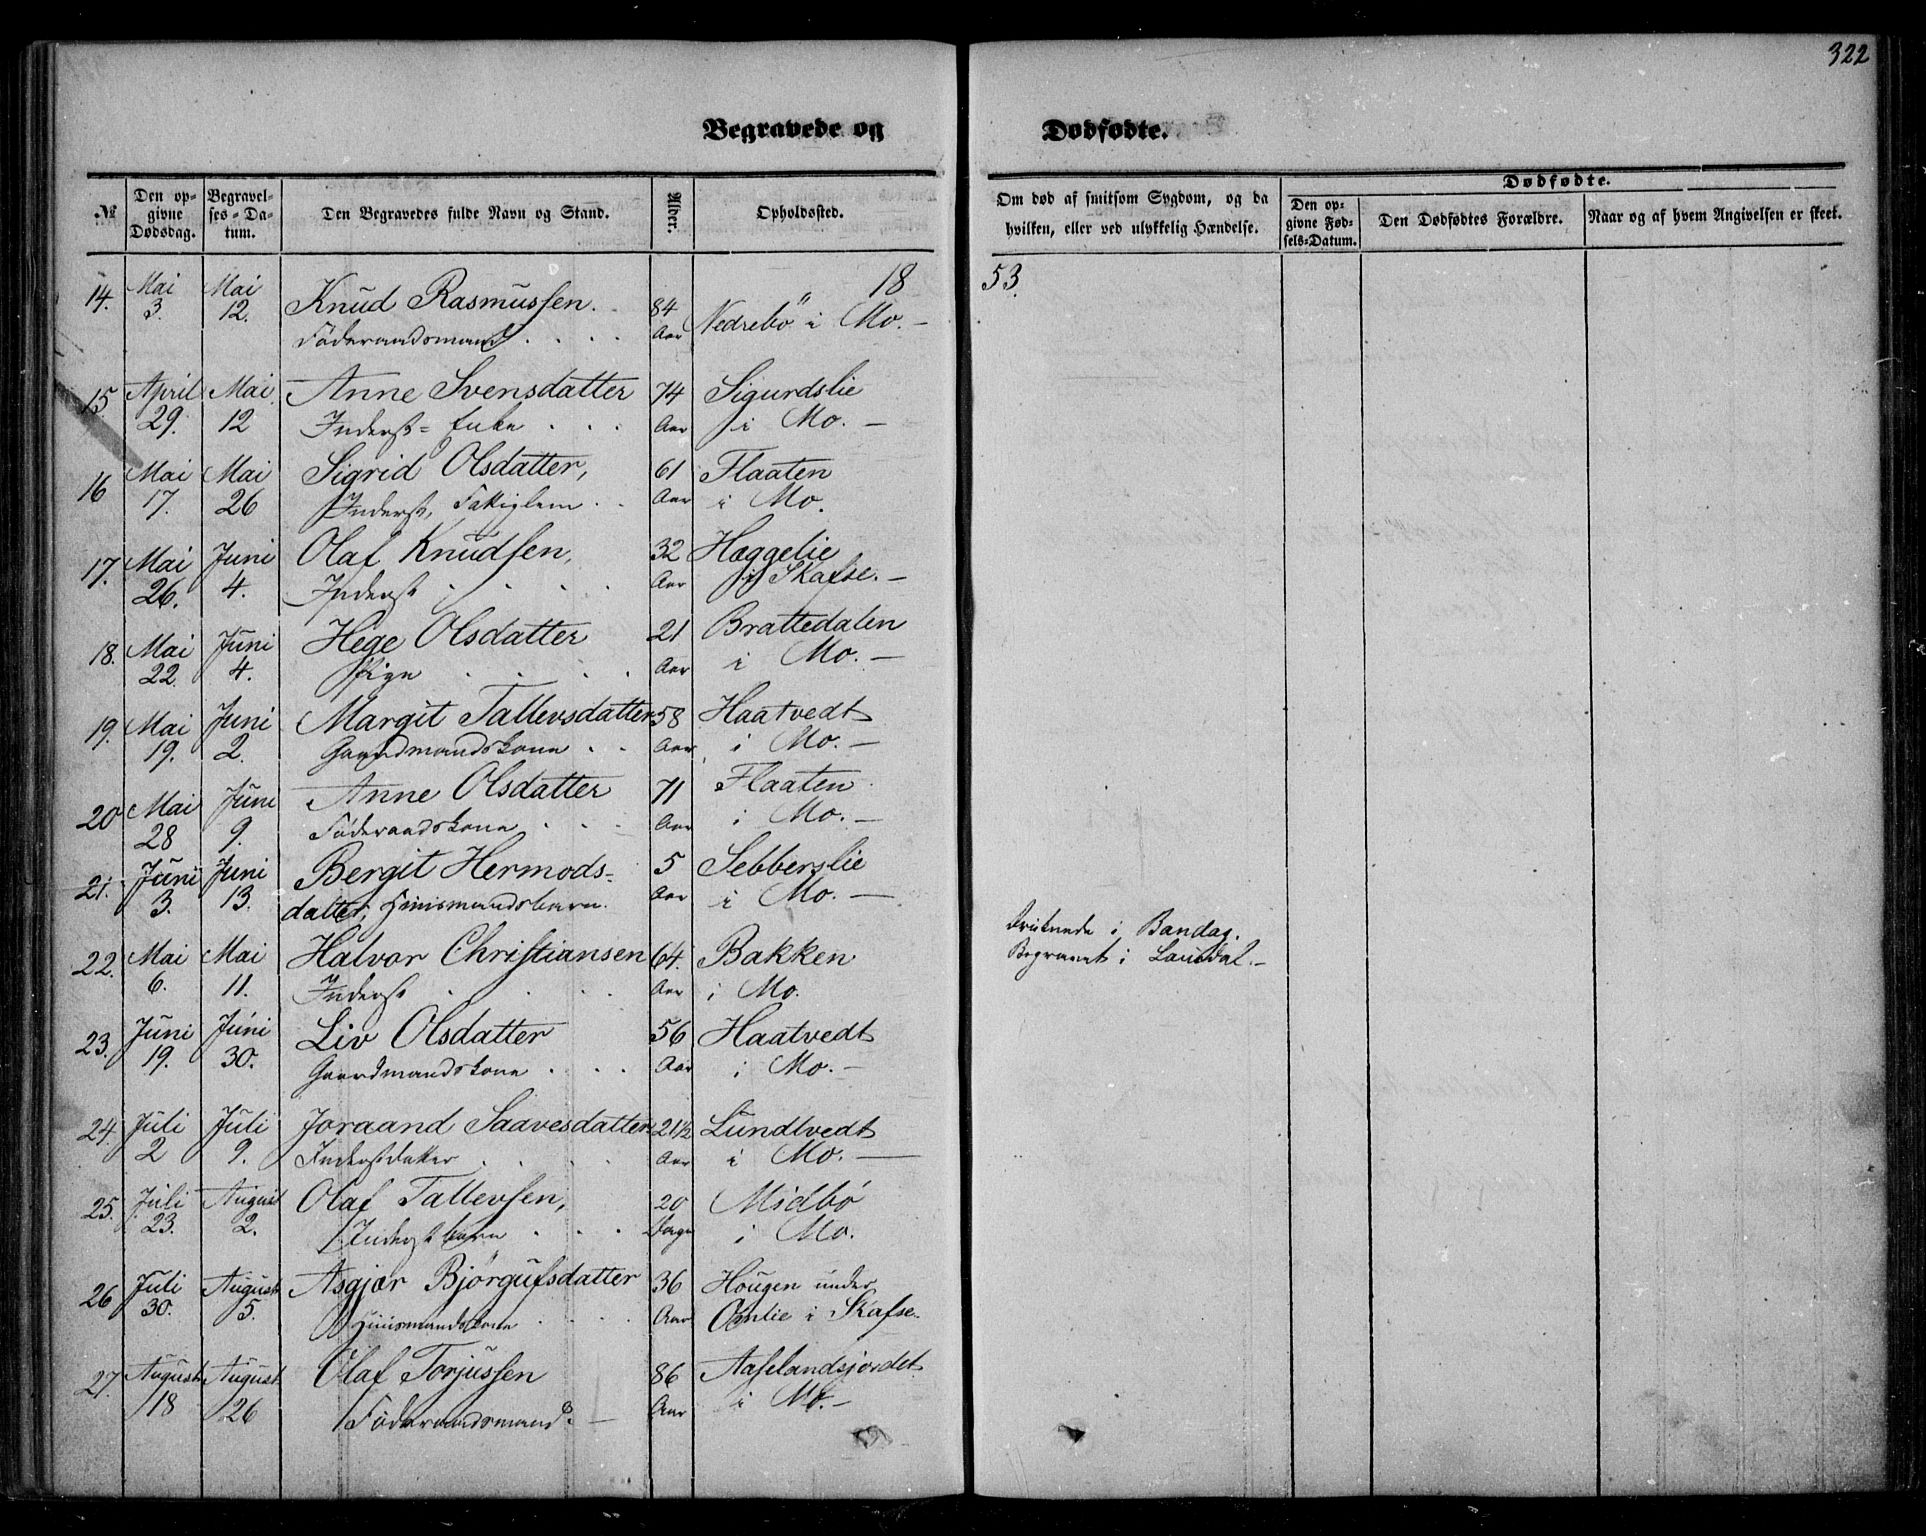 322
Begravede og Dødfødte.
№
Den op-
givne
Dødsdag.
Begravel-
ses-Da-
tum.
Den Begravedes fulde Navn og Stand.
Alder.
Opholdssted.
Om død af smitsom Sygdom, og da
hvilken, eller ved ulykkelig Hændelse.
Dødfødte.
Den op-
givne Fød-
sels-Datum.
Den Dødfødtes Forældre.
Naar og af hvem Angivelsen er skeet.
18 53.
14. Mai 3. Mai 12. Knud Rasmussen. 84 Nedrebö i Mo. —
Föderaadsmand . . . . Aar
15 April 29. Mai 12 Anne Svensdatter 74 Sigurdslie
Inderst= Enke . . . Aar i Mo. —
16 Mai 17. Mai 26 Sigrid Olsdatter, 61 Flaaten
Inderst, Fattiglem . . Aar i Mo.
17. Mai 26. Juni 4. Olaf Knudsen, 32 Hæggelie
Inderst . . . . Aar i Skafse. —
18. Mai 22. Juni 4. Hege Olsdatter 21 Brattedalen
Pige . . . . Aar i Mo. —
19. Mai 19. Juni 2. Margit Tallevsdatter 58 Haatvedt
Gaardmandskone . . Aar i Mo. —
20 Mai 28 Juni 9. Anne Olsdatter 71 Flaaten
Föderaadskone . . . Aar i Mo. —
21. Juni 3. Juni 13. Bergit Hermods- 5 Sebberslie
datter, Huusmandsbarn. Aar i Mo. —
22. Mai 6. Mai 11. Halvor Christiansen 64. Bakken
Inderst . . . . Aar i Mo.
Druknede i Bandag.
Begravet i Laurdal. —
23. Juni 19. Juni 30. Liv Olsdatter 56 Haatvedt
Gaardmandskone . . . Aar i Mo. —
24. Juli 2 Juli 9. Joraand Saavesdatter 21½ Lundtvedt
Inderstdatter . . . . Aar i Mo. —
25. Juli 23. August 2. Olaf Tallevsen, 20 Midbó
Inderstbarn . . . Dage i Mo.
26 Juli 30. August 5. Asgjær Bjórgufsdatter 36 Hougen under
Huusmandskone . . . . Aar Omlie i Skafse.
27. August 18 August 26 Olaf Torjussen 86 Aaselandsjordet
Föderaadsmand. — Aar i Mo. —